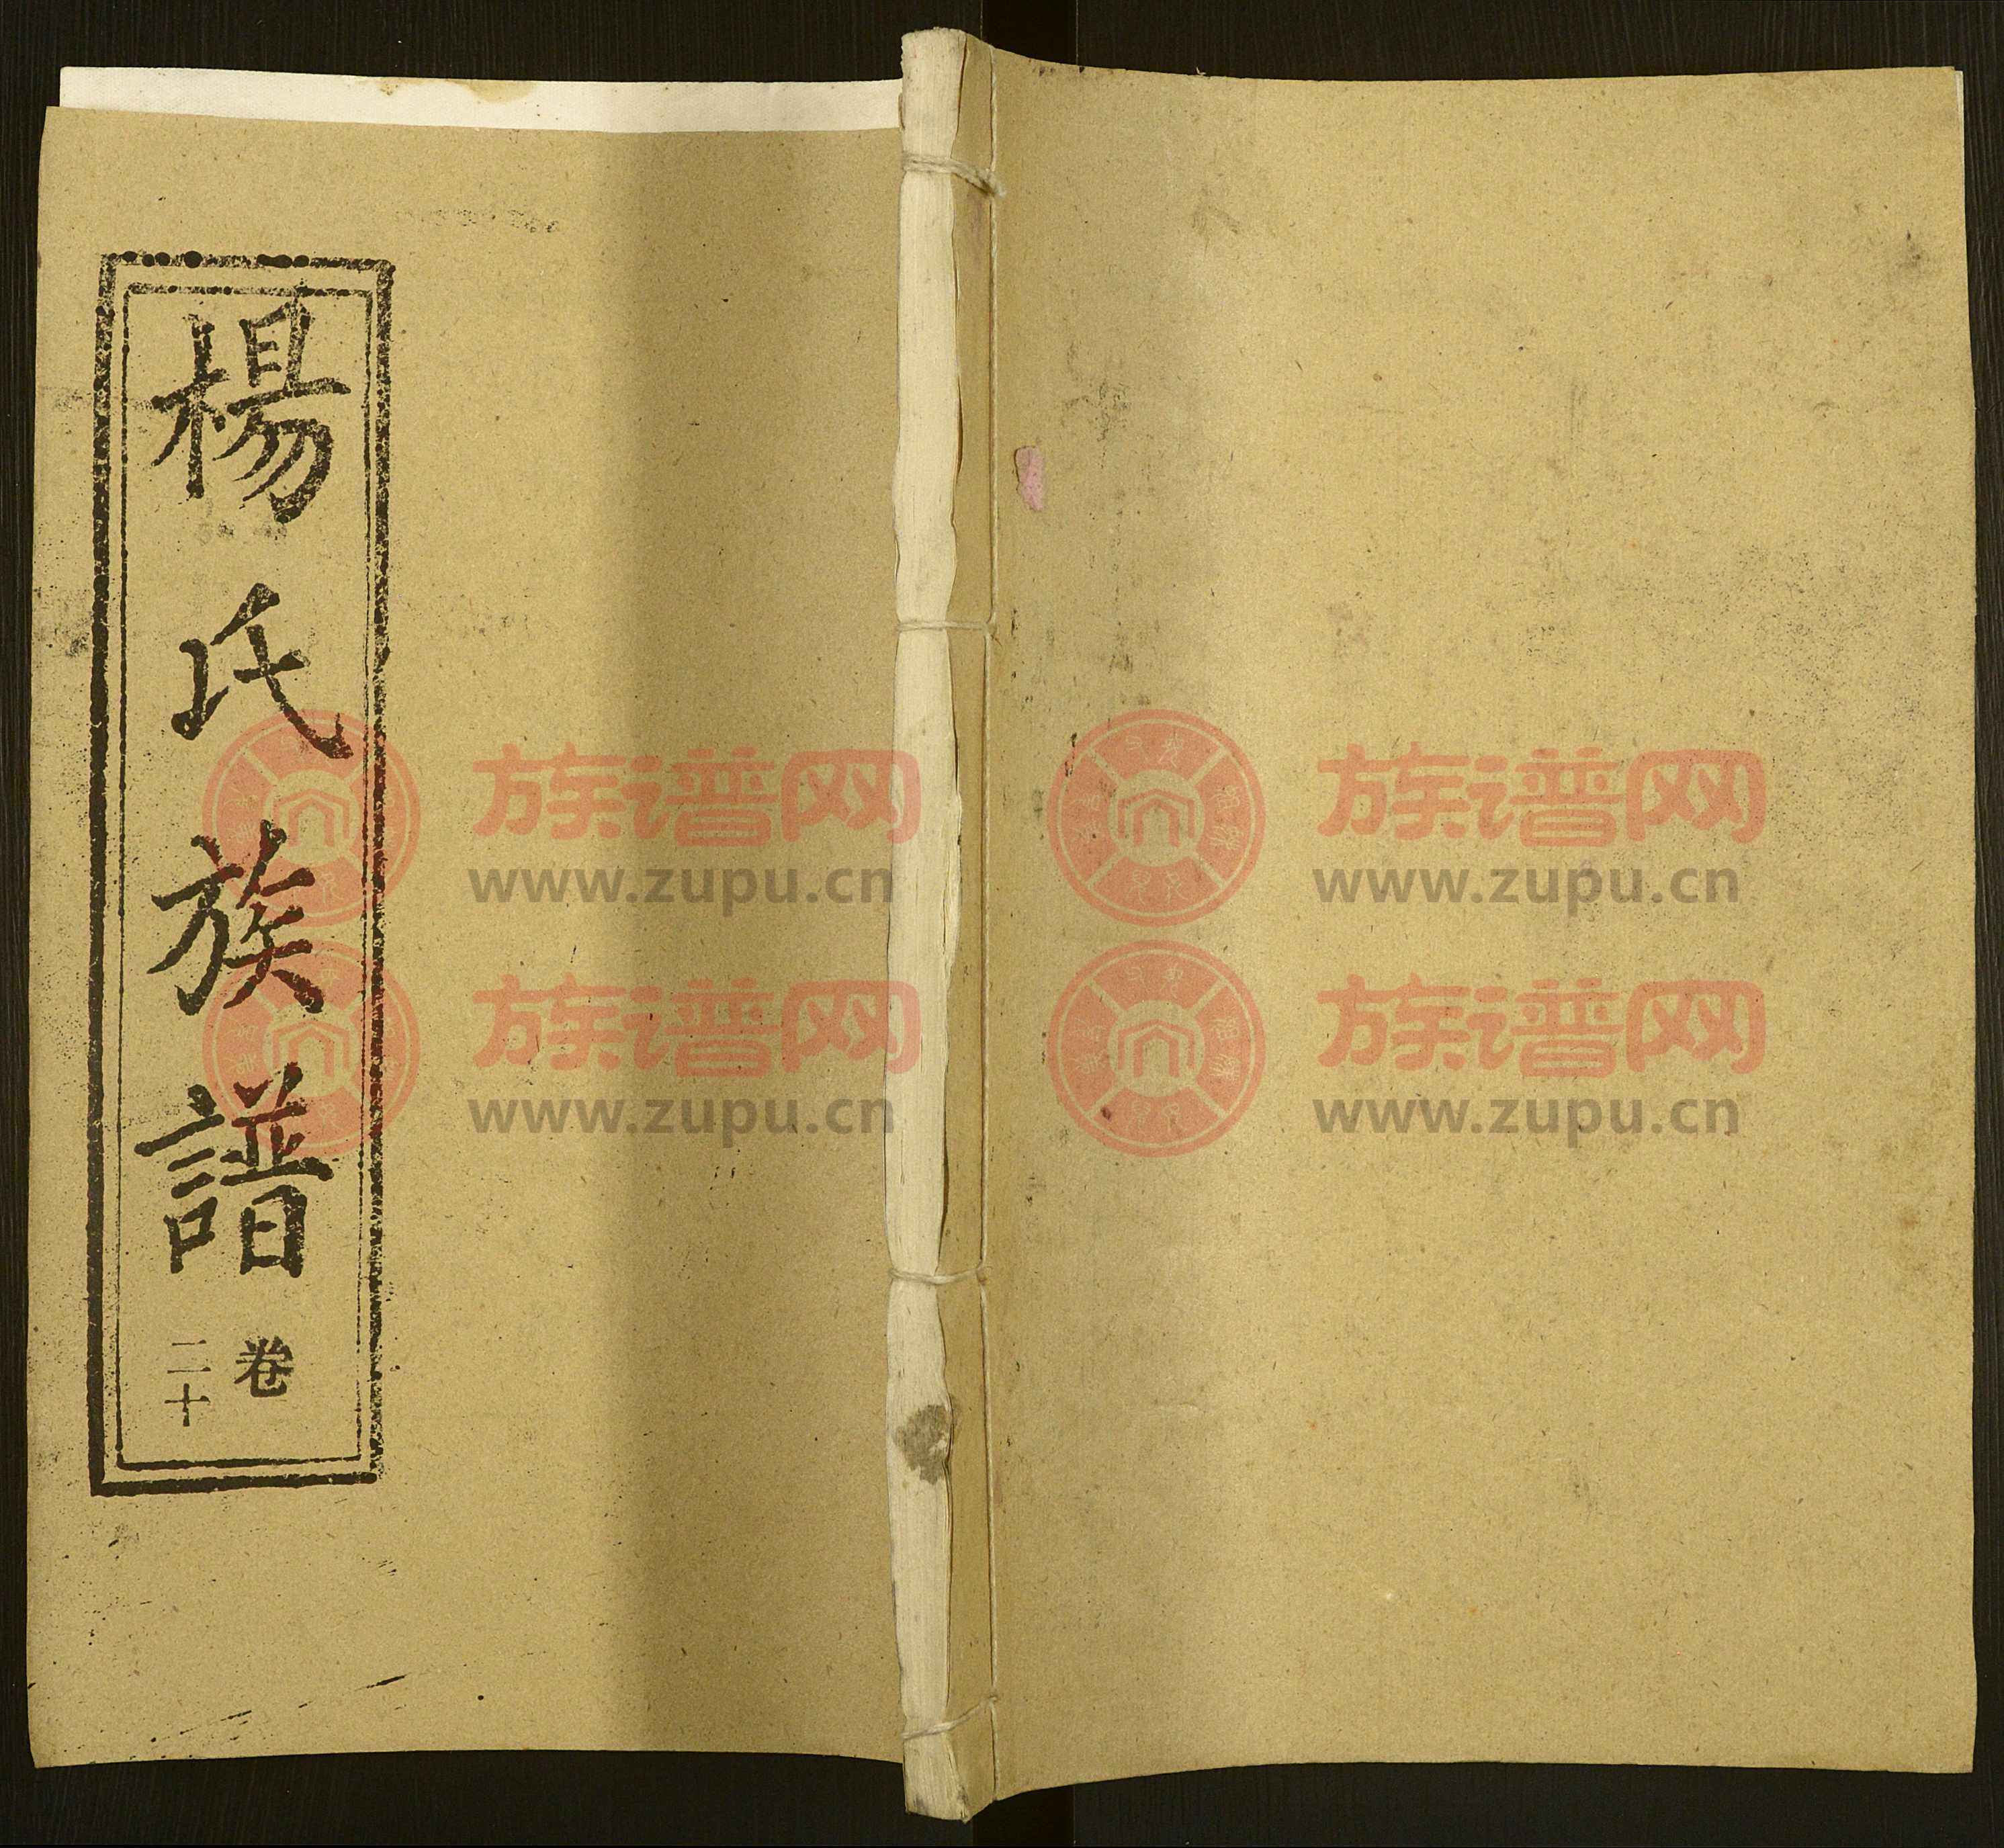 楊氏族譜
卷
二十
族谱网
www.zupu.cn
族谱网
www.zupu.cn
族谱网
www.zupu.cn
族谱网
www.zupu.cn